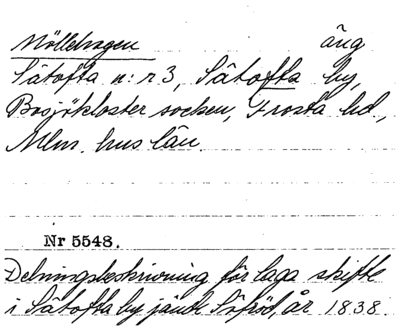 Möllehagen äng
Sätofta n:r 3, Sätofta by,
Bosjökloster socken, Frosta hd.,
Mlm. hus län.
Nr 5548.
Delningsbeskrivning för laga skifte
i Sätofta by jämte år 1838.